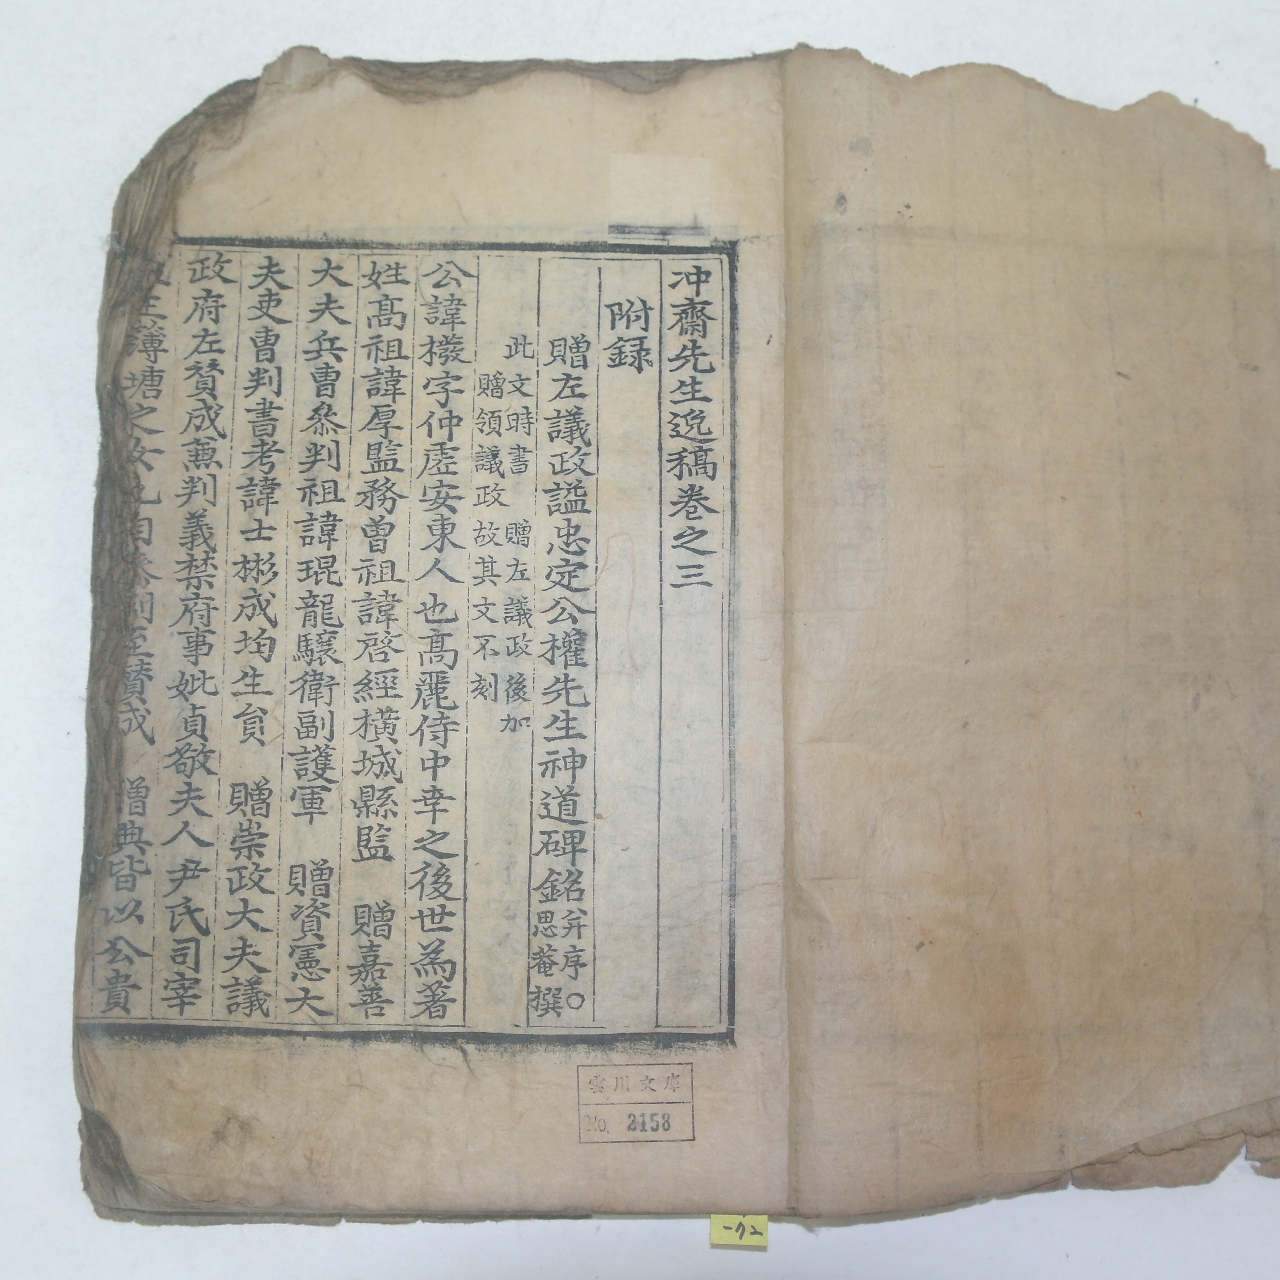 冲齋先生逸稿卷之三
附録
贈左議政謚忠定公權先生神道碑銘 幷序○思菴撰
此文時書 贈左議政後加
贈領議政故其文不刻
公諱橃字仲虛安東人也高麗侍中幸之後世為著
姓高祖諱厚監務曾祖諱啓經橫城縣監 贈嘉善
大夫兵曹叅判祖諱琨龍驤衛副護軍 贈資憲大
夫吏曹判書考諱士彬成均生員 贈崇政大夫議
政府左賛成兼判義禁府事妣貞敬夫人尹氏司宰
主簿塘之女也自叅判至賛成 贈典皆以公貴
雲川文庫
No. 2158
-72